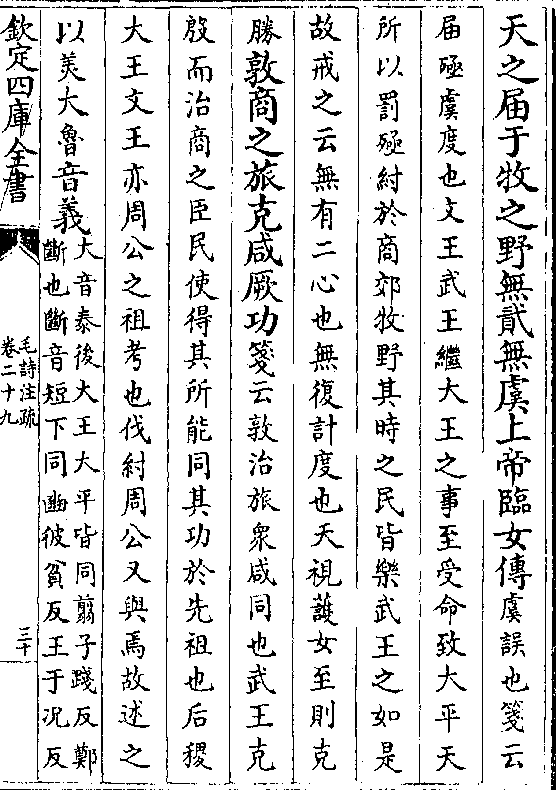 天之屆于牧之野無貳無虞上帝臨女傳虞誤也箋云
屆殛虞度也文王武王繼大王之事至受命致大平天
所以罰殛紂於商郊牧野其時之民皆樂武王之如是
故戒之云無有二心也無復計度也天視護女至則克
勝敦商之旅克咸厥功箋云敦治旅衆咸同也武王克
殷而治商之臣民使得其所能同其功於先祖也后稷
大王文王亦周公之祖考也伐紂周公又與焉故述之
以美大魯音義
大音泰後大王大平皆同翦子踐反鄭
斷也斷音短下同豳彼貧反王于况反
欽定四庫全書
毛詩注疏
卷二十九
三十